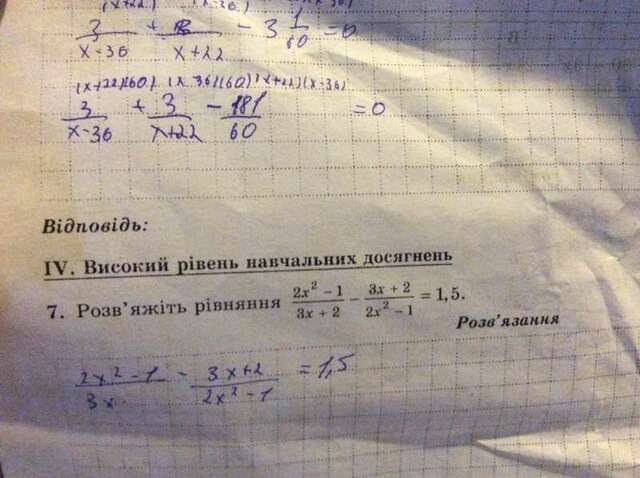 3/(x-36) + 3/(x+22) - 3 1/60 = 0
(x+22)(60) (x-36)(60) (x+22)(x-36)
3/(x-36) + 3/(x+22) - 181/60 = 0
Відповідь:
IV. Високий рівень навчальних досягнень
7. Розв'яжіть рівняння (2x² - 1)/(3x + 2) - (3x + 2)/(2x² - 1) = 1,5.
Розв'язання
(2x² - 1)/(3x - (3x+2)/(2x² - 1) = 1,5